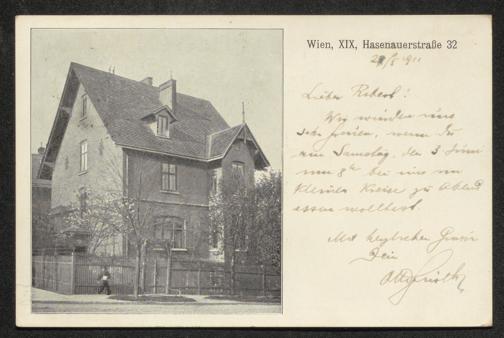 Wien, XIX, Hasenauerstraße 32
29/5 1911
Lieber Robert!
Wir würden uns
sehr freuen, wenn du
am Samstag, den 3. Juni
um 8h bei uns im
kleinen Kreise zu Abend
essen wolltest
Mit herzlichen Grüßen
Dein